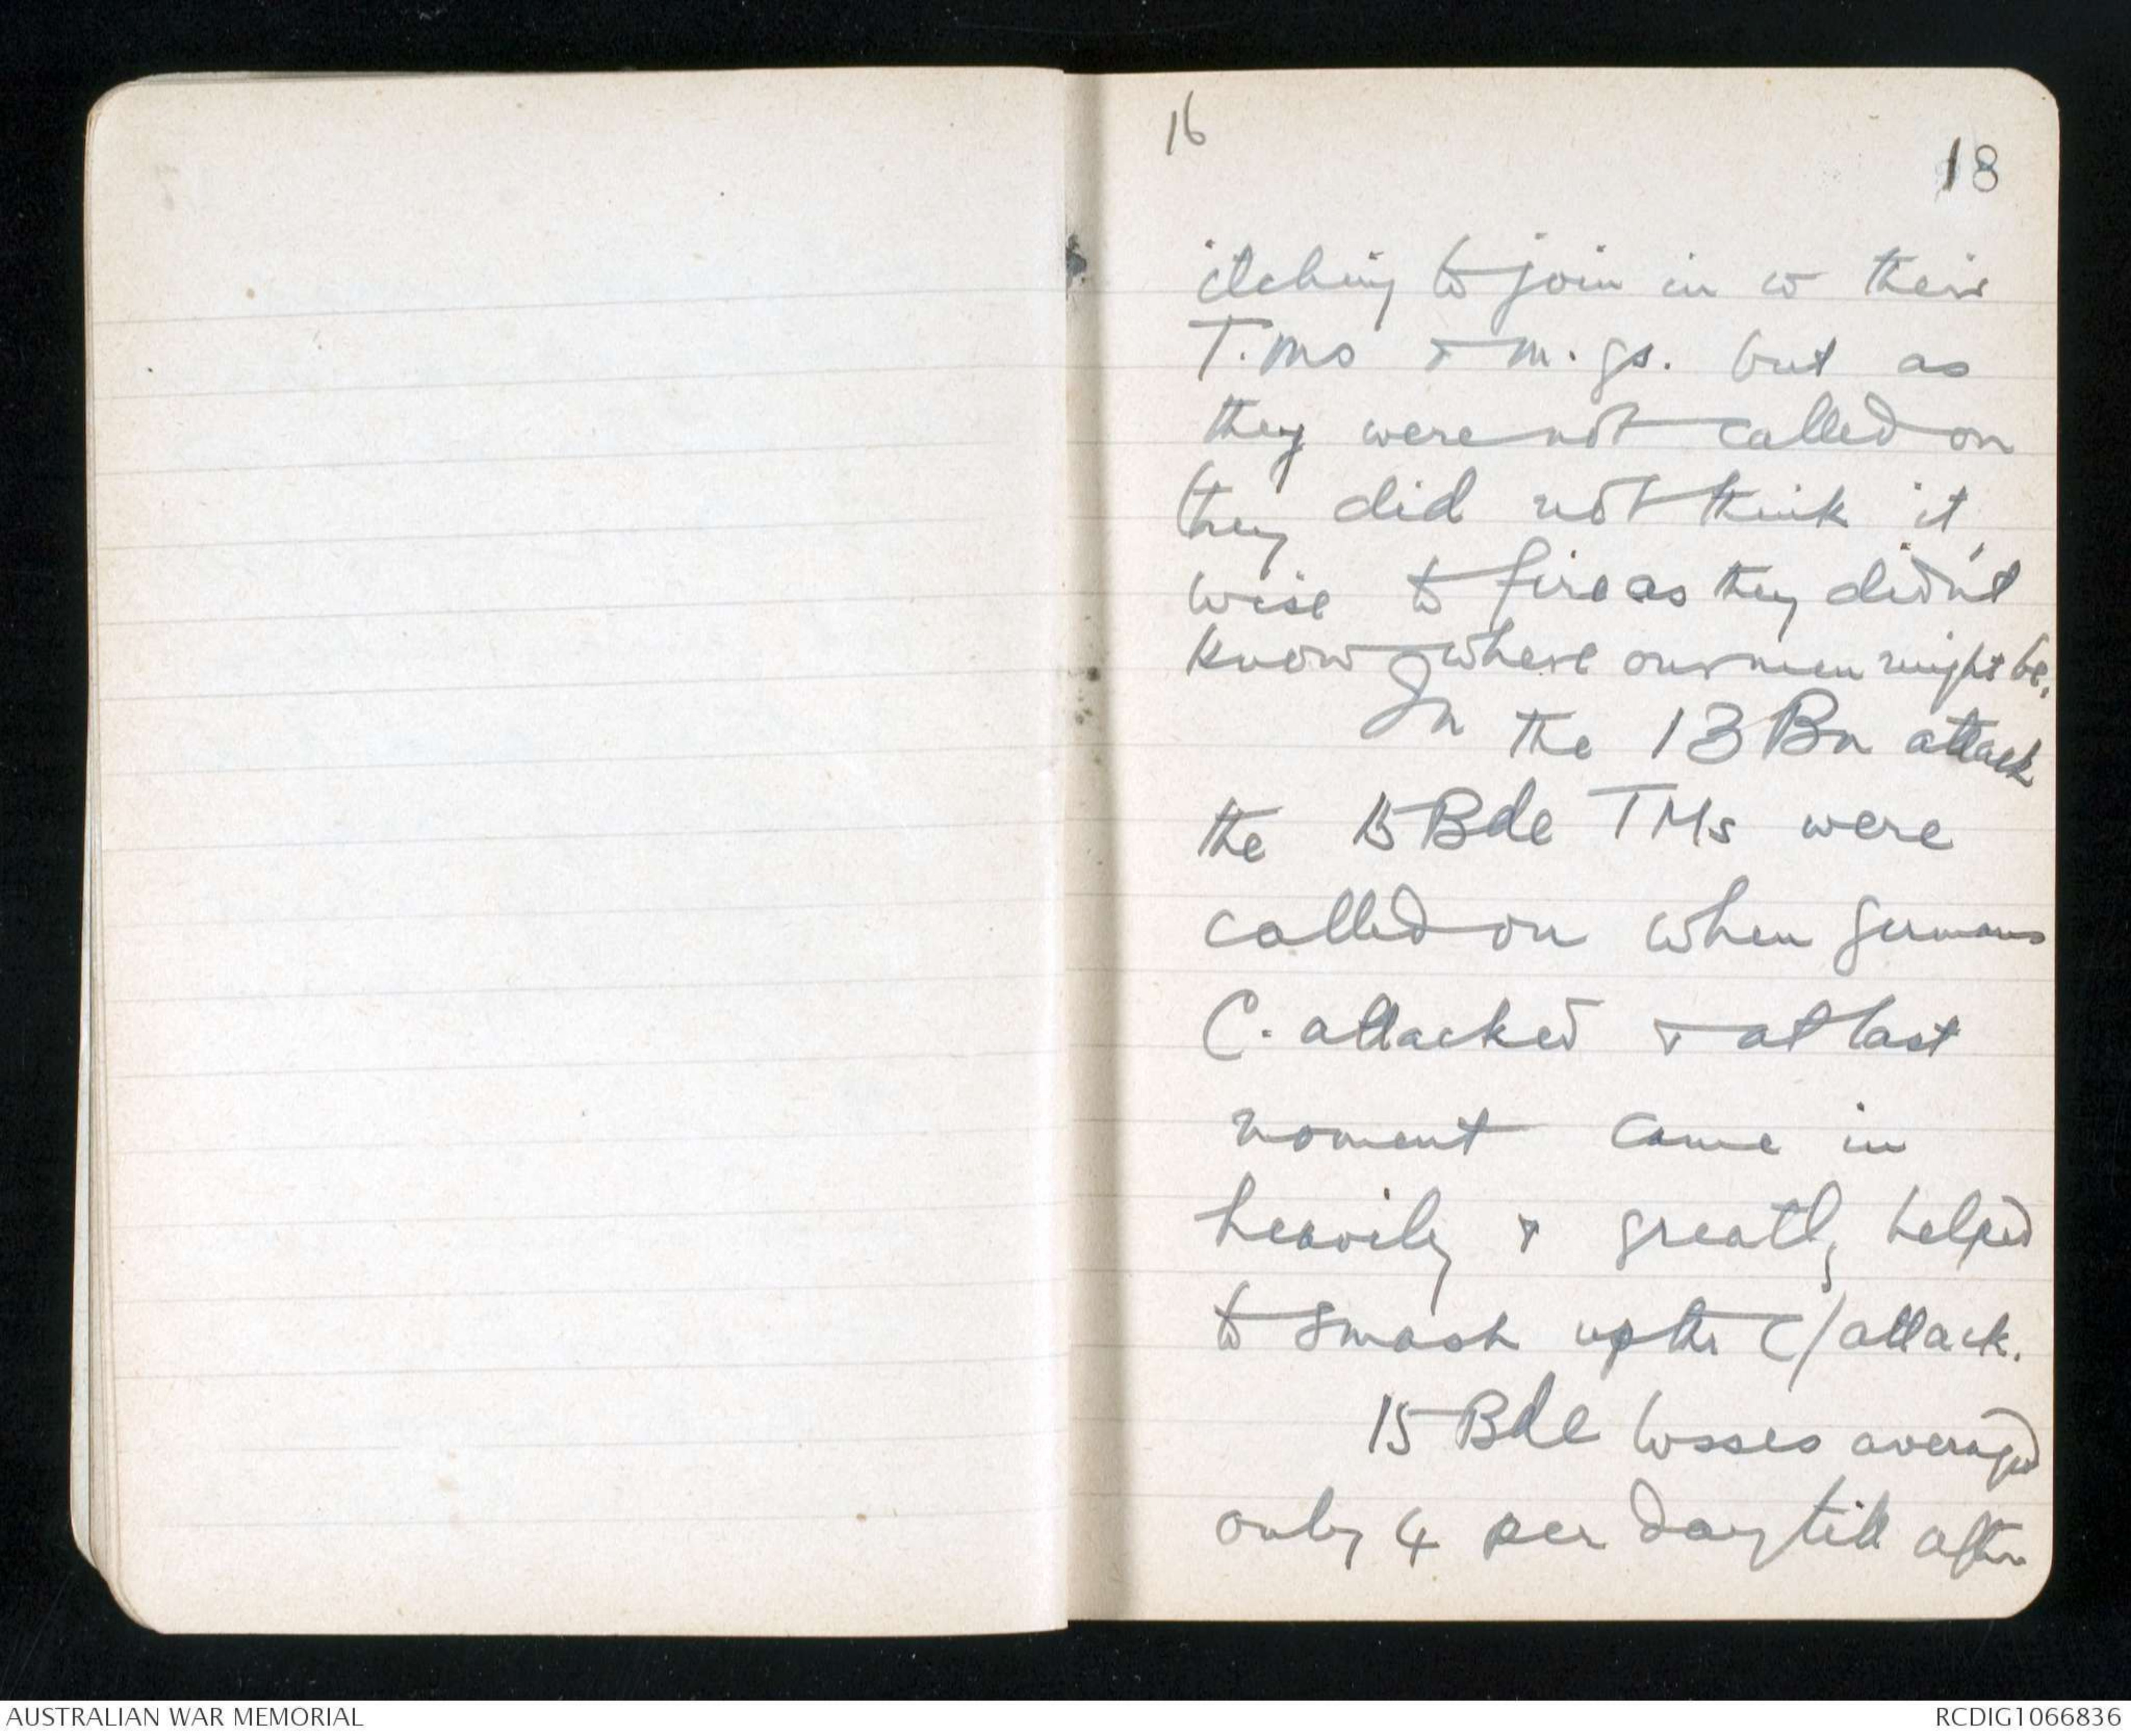 16
18
itching to join in w their
T.Ms & m.gs. but as
they were not called on
they did not think it
wise to fire as they didn't
know where our men might be.
In the 13 Bn attack
the 15 Bde TMs were
called on when Germans
C. attacked & at last
moment came in
heavily & greatly helped
to smash up the C/attack.
15 Bde losses averaged
only 4 per day till after
AUSTRALIAN WAR MEMORIAL
RCDIG1066836